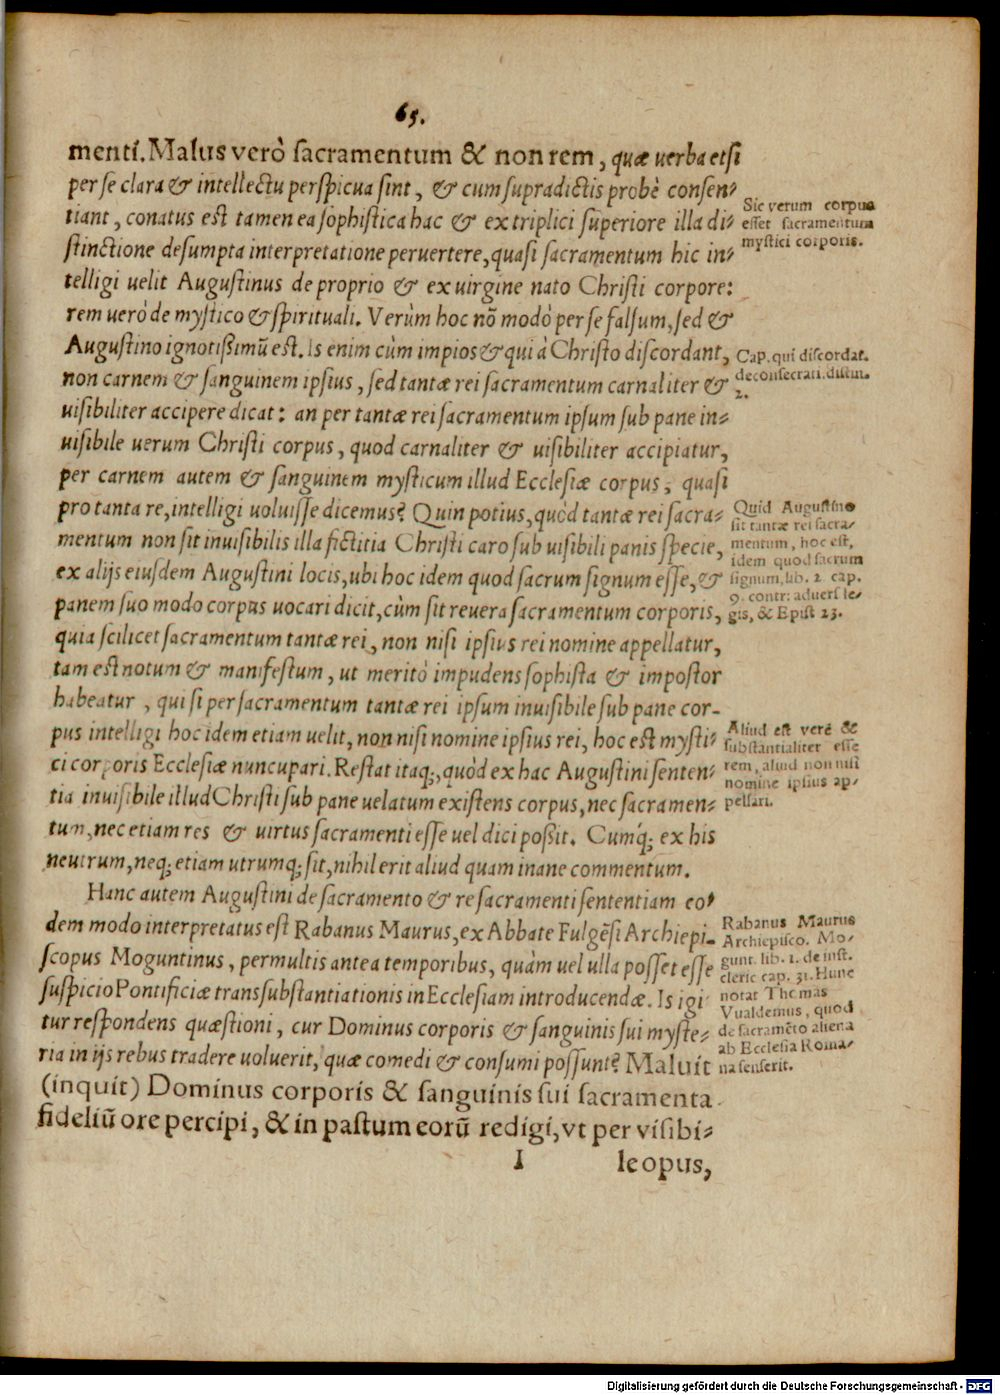 65.
menti. Malus verò sacramentum & non rem, quæ uerba etsi
per se clara & intellectu perspicua sint, & cum supradictis probè consen-
tiant, conatus est tamen ea sophistica hac & ex triplici superiore illa di-
stinctione desumpta interpretatione peruertere, quasi sacramentum hic in-
telligi uelit Augustinus de proprio & ex uirgine nato Christi corpore:
rem uerò de mystico & spirituali. Verùm hoc nō modò per se falsum, sed &
Augustino ignotißimū est. Is enim cùm impios & qui à Christo discordant,
non carnem & sanguinem ipsius, sed tantæ rei sacramentum carnaliter &
uisibiliter accipere dicat: an per tantæ rei sacramentum ipsum sub pane in-
uisibile uerum Christi corpus, quod carnaliter & uisibiliter accipiatur,
per carnem autem & sanguinem mysticum illud Ecclesiæ corpus, quasi
pro tanta re, intelligi uoluisse dicemus? Quin potius, quòd tantæ rei sacra-
mentum non sit inuisibilis illa fictitia Christi caro sub uisibili panis specie,
ex alijs eiusdem Augustini locis, ubi hoc idem quod sacrum signum esse, &
panem suo modo corpus uocari dicit, cùm sit reuera sacramentum corporis,
quia scilicet sacramentum tantæ rei, non nisi ipsius rei nomine appellatur,
tam est notum & manifestum, ut meritò impudens sophista & impostor
habeatur, qui si per sacramentum tantæ rei ipsum inuisibile sub pane cor-
pus intelligi hoc idem etiam uelit, non nisi nomine ipsius rei, hoc est mysti-
ci corporis Ecclesiæ nuncupari. Restat itaq;, quòd ex hac Augustini senten-
tia inuisibile illud Christi sub pane uelatum existens corpus, nec sacramen-
tum, nec etiam res & uirtus sacramenti esse uel dici poßit. Cumq́; ex his
neutrum, neq; etiam utrumq; sit, nihil erit aliud quam inane commentum.
Hanc autem Augustini de sacramento & re sacramenti sententiam eo-
dem modo interpretatus est Rabanus Maurus, ex Abbate Fulgēsi Archiepi-
scopus Moguntinus, permultis antea temporibus, quàm uel ulla posset esse
suspicio Pontificiæ transsubstantiationis in Ecclesiam introducendæ. Is igi
tur respondens quæstioni, cur Dominus corporis & sanguinis sui myste-
ria in ijs rebus tradere uoluerit, quæ comedi & consumi possunt? Maluit
(inquit) Dominus corporis & sanguinis sui sacramenta
fideliū ore percipi, & in pastum eorū redigi, vt per visibi-
I leopus,
Sic verum corpus
esset sacramentum
mystici corporis.
Cap. qui discordat.
de consecrati. distin.
2.
Quid Augustino
sit tantæ rei sacra-
mentum, hoc est,
idem quod sacrum
signum, lib. 2. cap.
9. contr: aduers le-
gis, & Epist 23.
Aliud est verè &
substantialiter esse
rem, aliud non nisi
nomine ipsius ap-
pellari.
Rabanus Maurus
Archiepisco. Mo-
gunt. lib. 1. de inst.
cleric cap. 31. Hunc
notat Thomas
Vualdemus, quod
de sacramēto aliena
ab Ecclesia Roma-
na senserit.
Digitalisierung gefördert durch die Deutsche Forschungsgemeinschaft - DFG